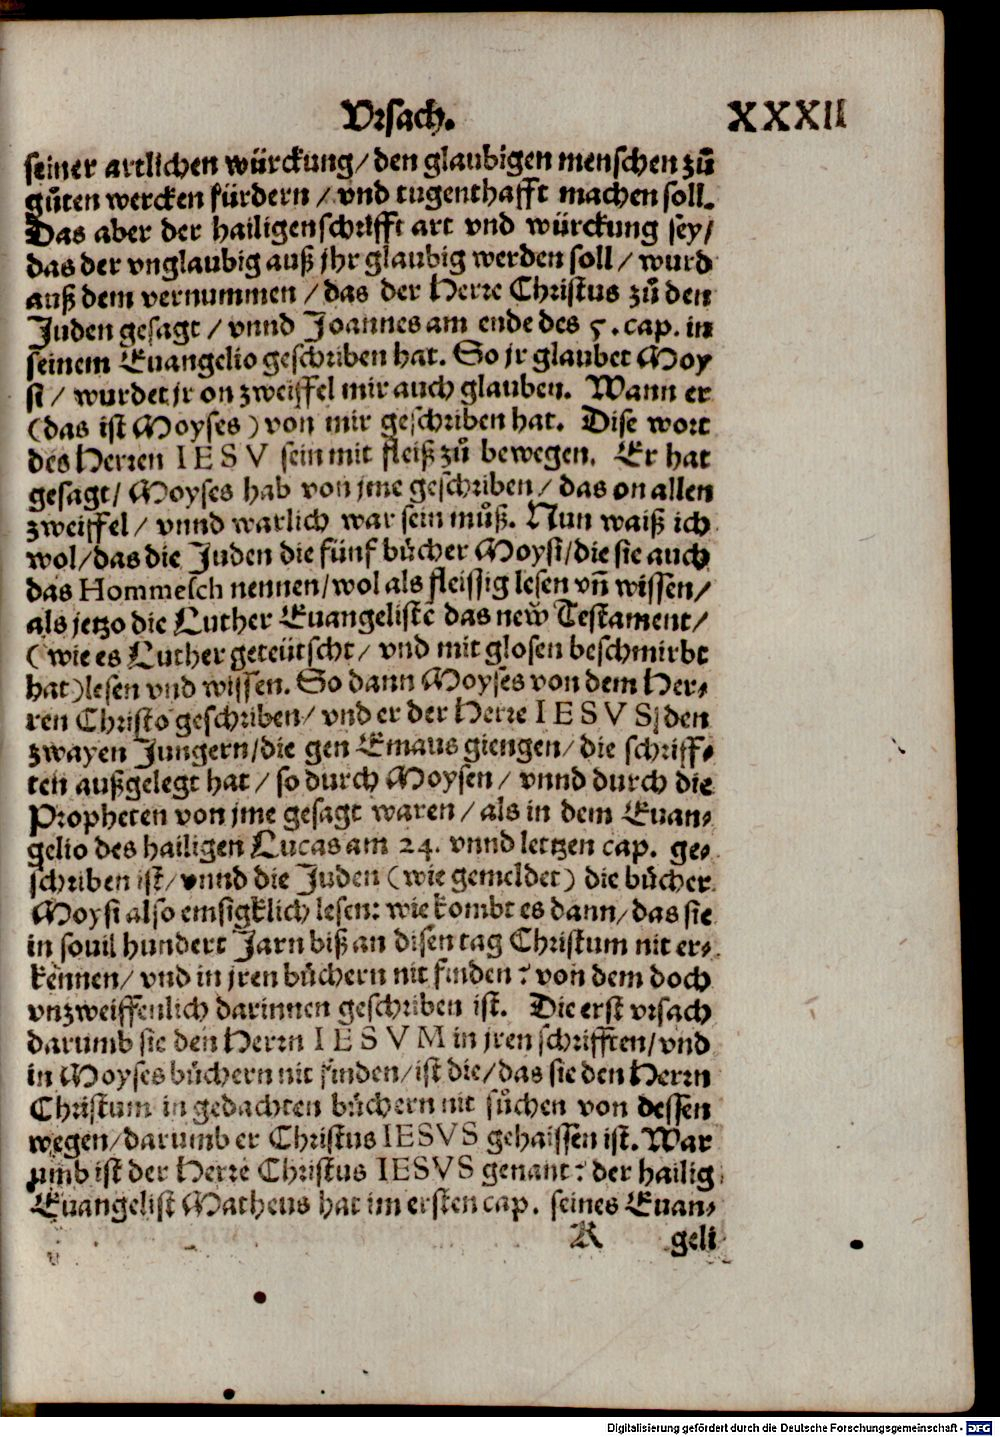 Vrsach. XXXII
seiner artlichen würckung/ den glaubigen menschen zů
gůten wercken fürdern / vnd tugenthafft machen soll.
Das aber der hailigenschrifft art vnd würckung sey/
das der vnglaubig auß jhr glaubig werden soll / wurd
auß dem vernummen / das der Herre Christus zů den
Juden gesagt / vnnd Joannes am ende des 5. cap. in
seinem Euangelio geschriben hat. So jr glaubet Moy
si / wurdet jr on zweiffel mir auch glauben. Wann er
(das ist Moyses) von mir geschriben hat. Dise wort
des Herren IESV sein mit fleiß zů bewegen. Er hat
gesagt/ Moyses hab von jme geschriben / das on allen
zweiffel / vnnd warlich war sein můß. Nun waiß ich
wol/das die Juden die fünf bücher Moysi/die sie auch
das Hommesch nennen/wol als fleissig lesen vñ wissen/
als jetzo die Luther Euangelistē das new Testament/
(wie es Luther geteütscht/ vnd mit glosen beschmirbt
hat)lesen vnd wissen. So dann Moyses von dem Her⸗
ren Christo geschriben/ vnd er der Herre IESVS/den
zwayen Jungern/die gen Emaus giengen/ die schriff⸗
ten außgelegt hat / so durch Moysen / vnnd durch die
Propheten von jme gesagt waren / als in dem Euan⸗
gelio des hailigen Lucas am 24. vnnd letzten cap. ge⸗
schriben ist/ vnnd die Juden (wie gemeldet) die bücher
Moysi also emsigklich lesen: wie kombt es dann/das sie
in souil hundert Jarn biß an disen tag Christum nit er⸗
kennen/ vnd in jren büchern nit finden? von dem doch
vnzweiffenlich darinnen geschriben ist. Die erst vrsach
darumb sie den Herrn IESVM in jren schrifften/vnd
in Moyses büchern nit finden/ist die/das sie den Herrn
Christum in gedachten büchern nit sůchen von dessen
wegen/darumb er Christus IESVS gehaissen ist. War
umb ist der Herre Christus IESVS genant? der hailig
Euangelist Matheus hat im ersten cap. seines Euan⸗
K geli
Digitalisierung gefördert durch die Deutsche Forschungsgemeinschaft - DFG